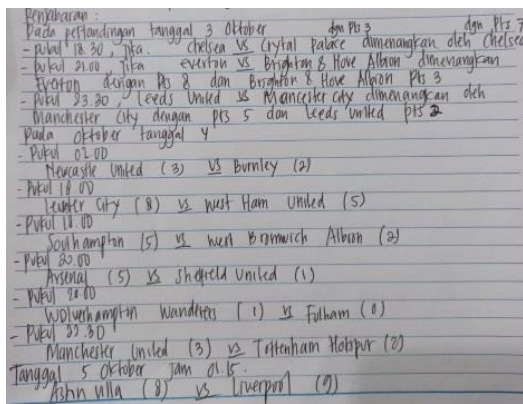 Penjabaran :
Pada pertandingan tanggal 3 Oktober dgn Pts 3 dgn Pts 7
- pukul 18.30, jika. chelsea vs Crytal palace dimenangkan oleh chelsea
- pukul 21.00, jika everton vs Brighton & Hove Albion dimenangkan
Everton dengan Pts 8 dan Brighton & Hove Albion Pts 3
- Pukul 23.30, Leeds United vs Mancester city dimenangkan oleh
Manchester City dengan pts 5 dan leeds united pts 2
Pada oktober tanggal 4
- Pukul 02.00
Newcastle United (3) vs Burnley (2)
- Pukul 18 00
City (8) vs West Ham United (5)
- Pukul 18.00
Southampton (5) vs west Bromwich Albion (2)
- Pukul 20.00
Arsenal (5) vs Shefield United (1)
- Pukul 20.00
Wolverhampton Wanderers (1) vs Fulham (0)
- Pukul 22.30
Manchester United (3) vs Tottenham Hotspur (2)
Tanggal 5 Oktober jam 01.15.
Aston villa (8) vs Liverpool (9)